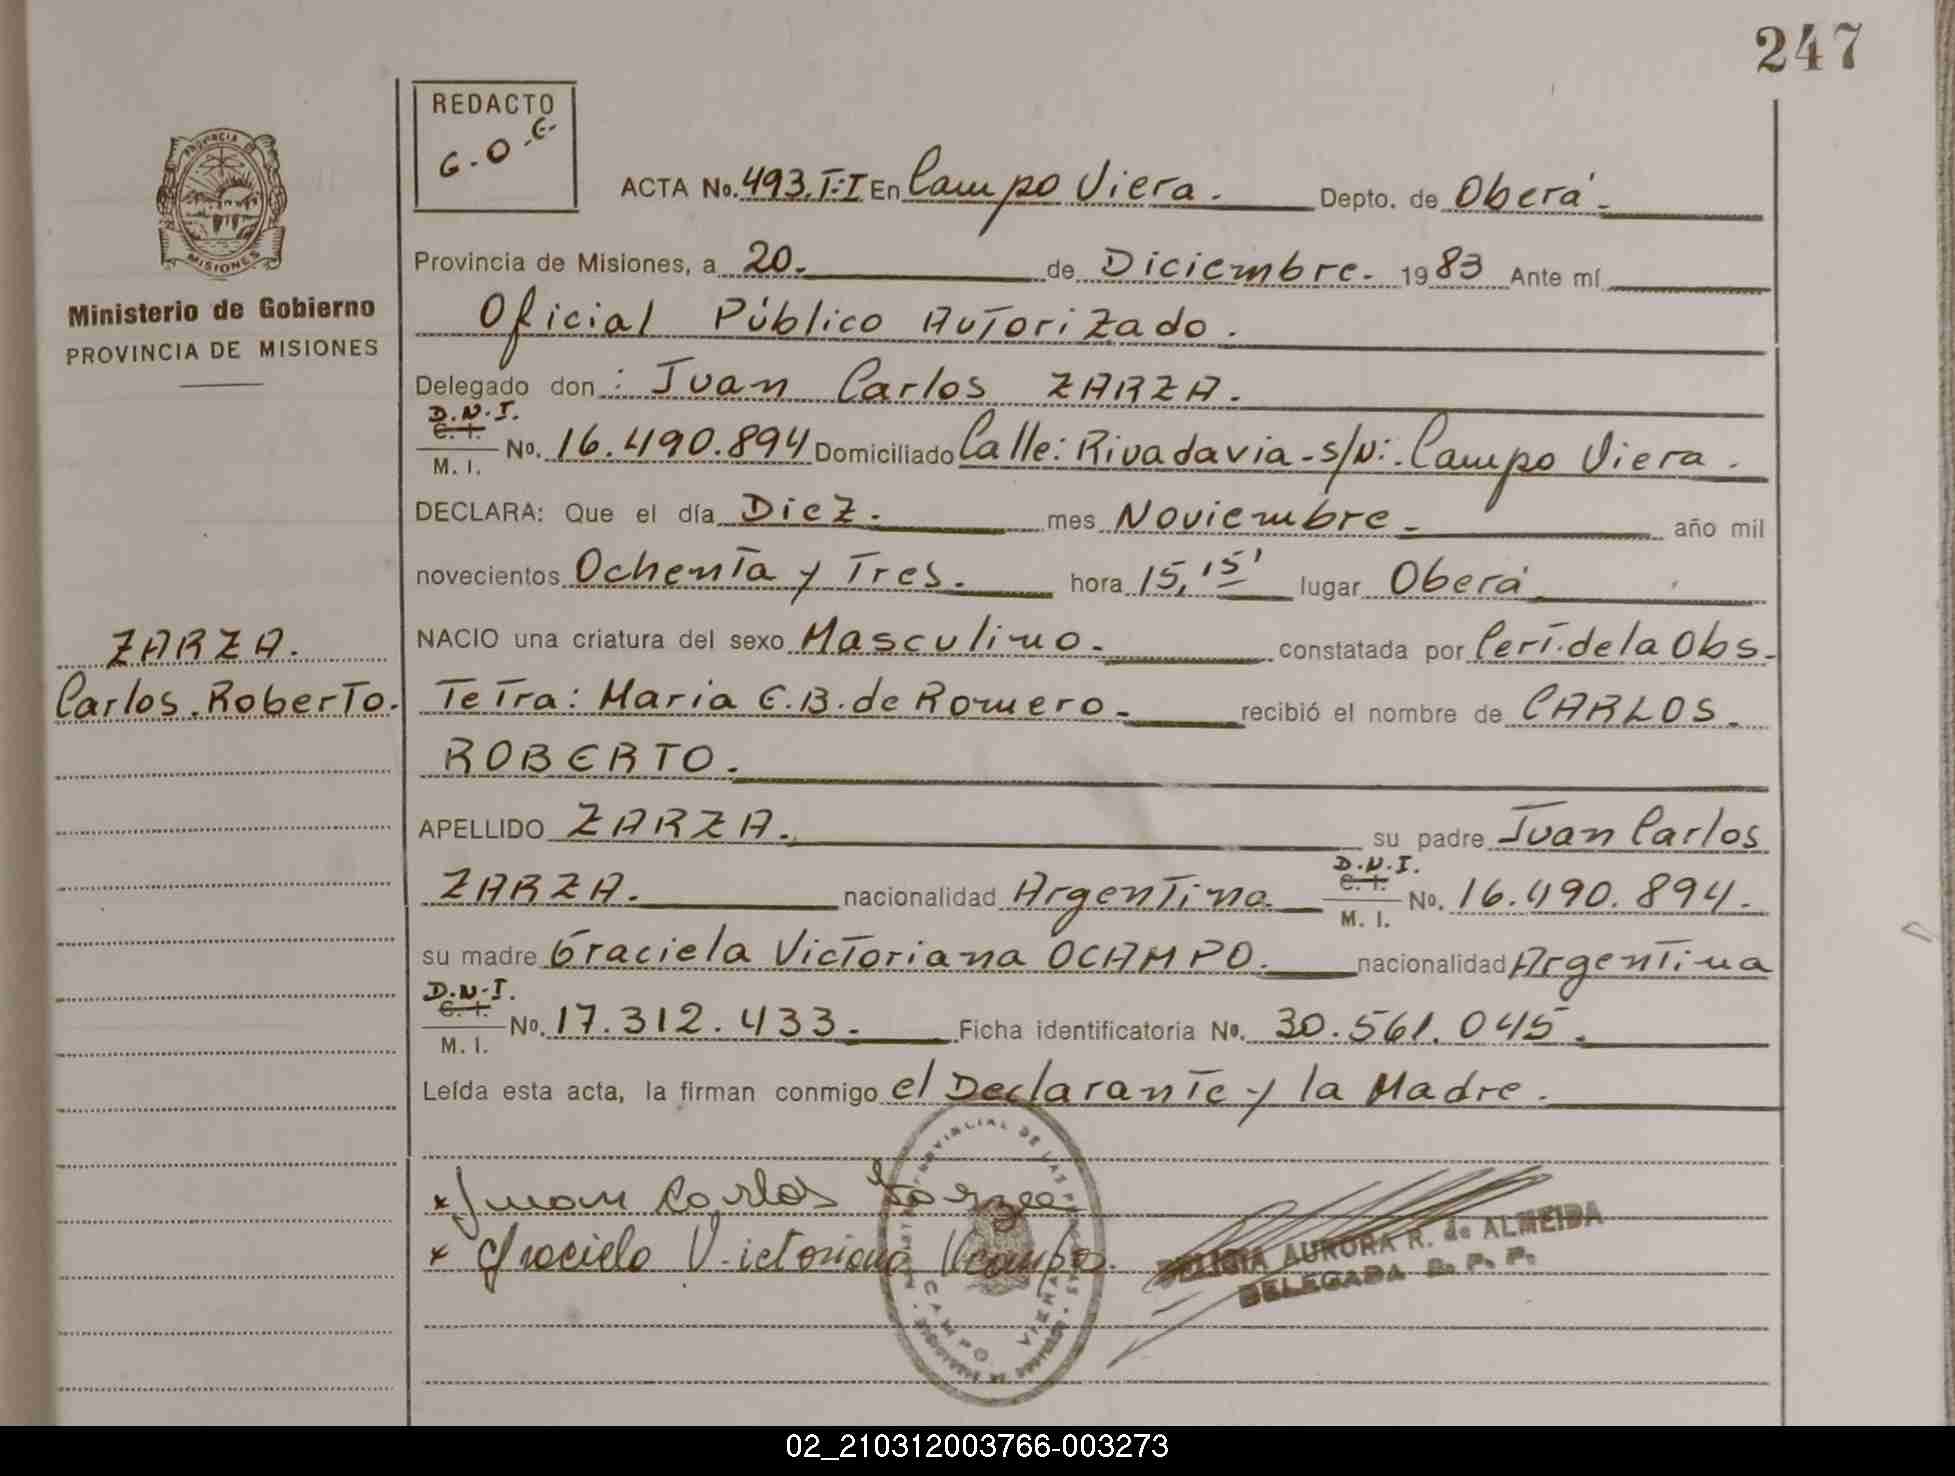 247
REDACTO
G.O.G.
PROVINCIA
MISIONES
Ministerio de Gobierno
PROVINCIA DE MISIONES
ACTA No. 493.T:I En Campo Viera. Depto. de Oberá.
Provincia de Misiones, a 20. de Diciembre. 1983 Ante mí
Oficial Público Autorizado.
Delegado don: Juan Carlos ZARZA.
D.N.I.
C. I.
M. I. No. 16.490.894 Domiciliado Calle: Rivadavia-s/N:. Campo Viera.
DECLARA: Que el día Diez. mes Noviembre. año mil
novecientos Ochenta y Tres. hora 15,15' lugar Oberá
NACIO una criatura del sexo Masculino. constatada por Certi. de la Obs.
ZARZA.
Carlos. Roberto.
Tetra: Maria E.B. de Romero. recibió el nombre de CARLOS.
ROBERTO.
APELLIDO ZARZA. su padre Juan Carlos
ZARZA. nacionalidad Argentina D.N.I.
C. I.
M. I. No. 16.490.894.
su madre Graciela Victoriana OCAMPO. nacionalidad Argentina
D.N.I.
C. I.
M. I. No. 17.312.433. Ficha identificatoria No. 30.561.045.
Leída esta acta, la firman conmigo el Declarante y la Madre.
x Juan Carlos Zarza
x Graciela Victoriana Ocampo.
PROVINCIAL DE LAS PERSONAS
CAMPO VIERA
DELICIA AURORA R. de ALMEIDA
DELEGADA R. P. P.
02_210312003766-003273